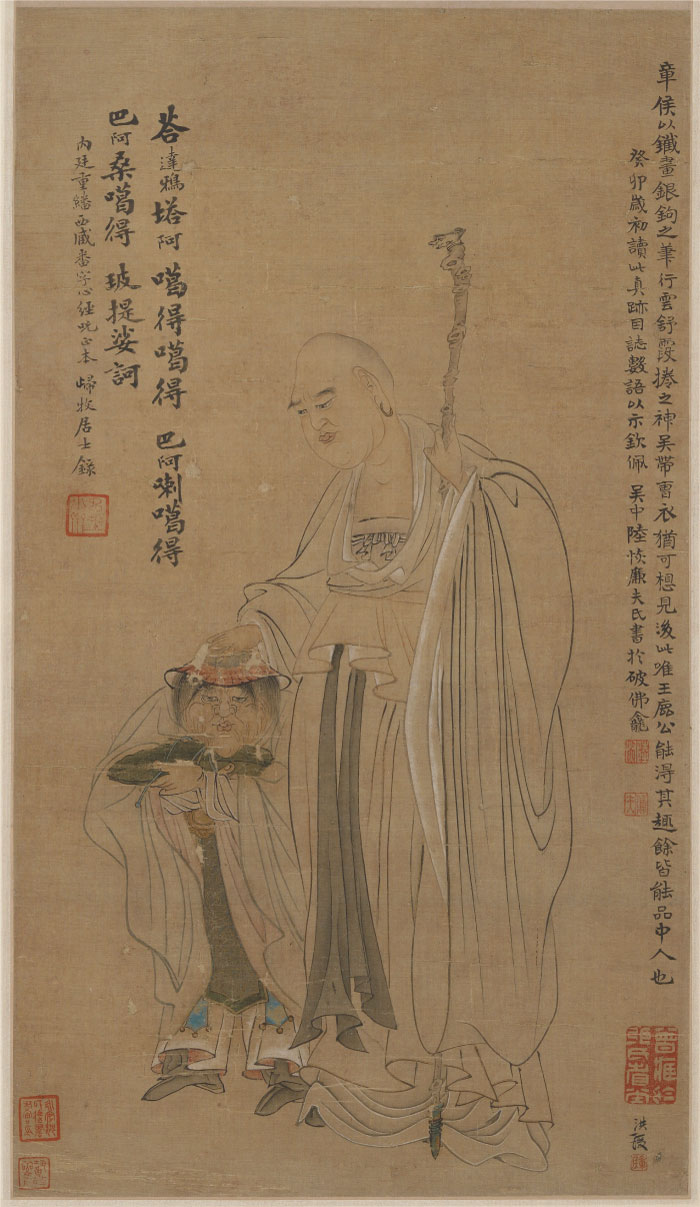 章侯以鐵畫銀鉤之筆行雲舒霞捲之神吳帶曹衣猶可想見後此唯王廌公能得其趣餘皆能品中人也
癸卯歲初讀此真跡因誌數語以示欽佩 吳中陸恢廉夫氏書於破佛龕
答達鴉塔阿噶得噶得 巴阿喇噶得
巴阿桑噶得 玻提娑訶
內廷重繙西藏番字心經咒正本 歸牧居士錄
洪綬